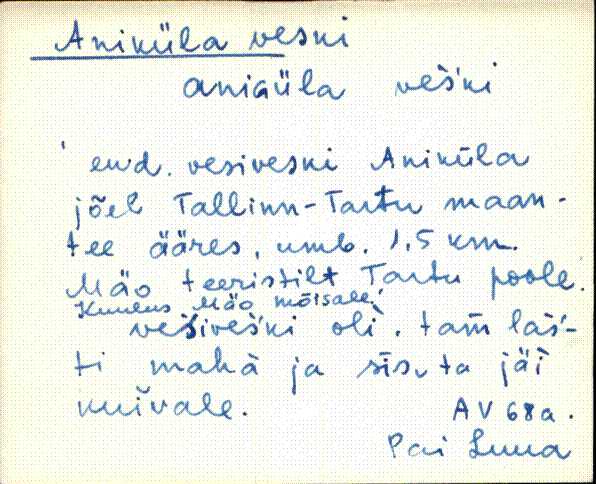 Aniküla veski
aniGüla veš́ki
end. vesiveski Aniküla
jõel Tallinn-Tartu maan-
tee ääres, umb. 1,5 km.
Mäo teeristilt Tartu poole.
Kuulus Mäo mõisale.
vesiveš́ki oli. tam̆ laš́-
ti mahà ja sīs, ta jäi
kuivale.
AV 68a.
Pai Luua